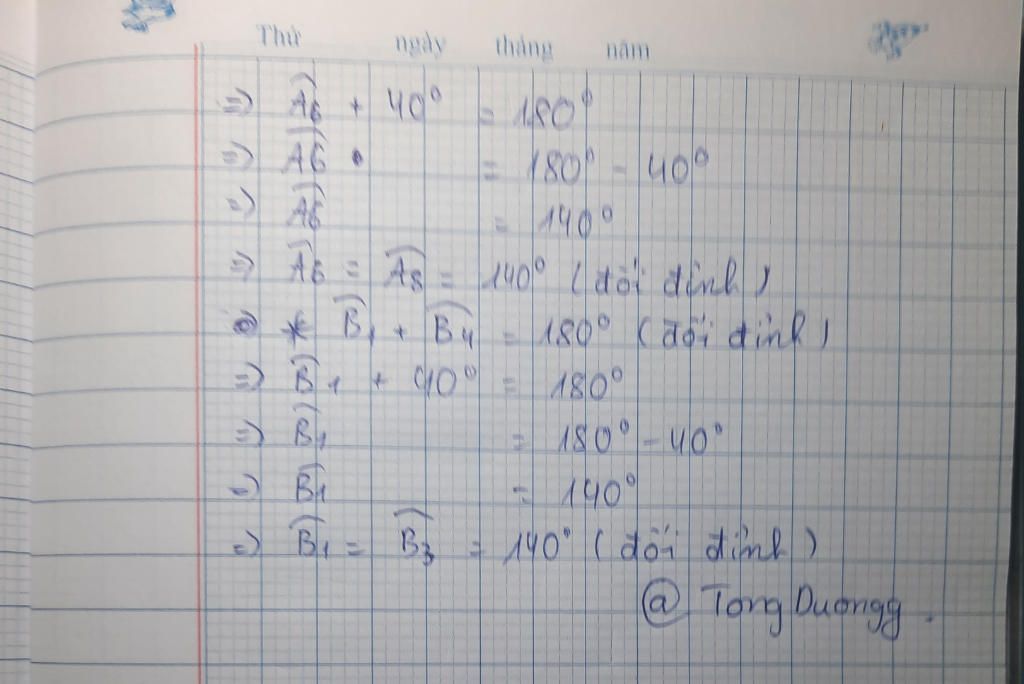 Thứ ngày tháng năm
=> A6 + 40° = 180°
=> A6 = 180° - 40°
=> A6 = 140°
=> A6 = A8 = 140° (đối đỉnh)
=> * B1 + B4 = 180° (đối đỉnh)
=> B1 + 40° = 180°
=> B1 = 180° - 40°
=> B1 = 140°
=> B1 = B3 = 140° (đối đỉnh)
@ Tong Duongg.